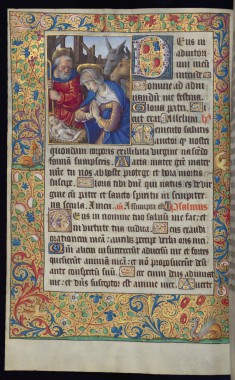 Deus in
adiutori
um meu
intende
Domine ad adiu
uandu me festina
Gloria patri
Sicut erat Alleluia
Memento salutis
auctor q nostri
quondam corporis ex illibata virgine nascedo
formam sumpseris Maria mater gratie mater
nos ab hoste protege et hora mortis
suscipe Gloria tibi dne qui natus es de virgi
ne cu patre et sancto spiritu in sempiter
na secula Amen Assumpta est psalmus
Deus in nomine tuo salvu me fac et
in virtute tua iudica Deus exaudi
orationem mea auribz percipe verba oris mei
Qm alieni insurrexerut aduersu me et fortes
quesierut anima mea et no proposuerut deu
ante conspectu suu Ecce enim deus adiuuat
me et dns susceptor est anime mee Auerte